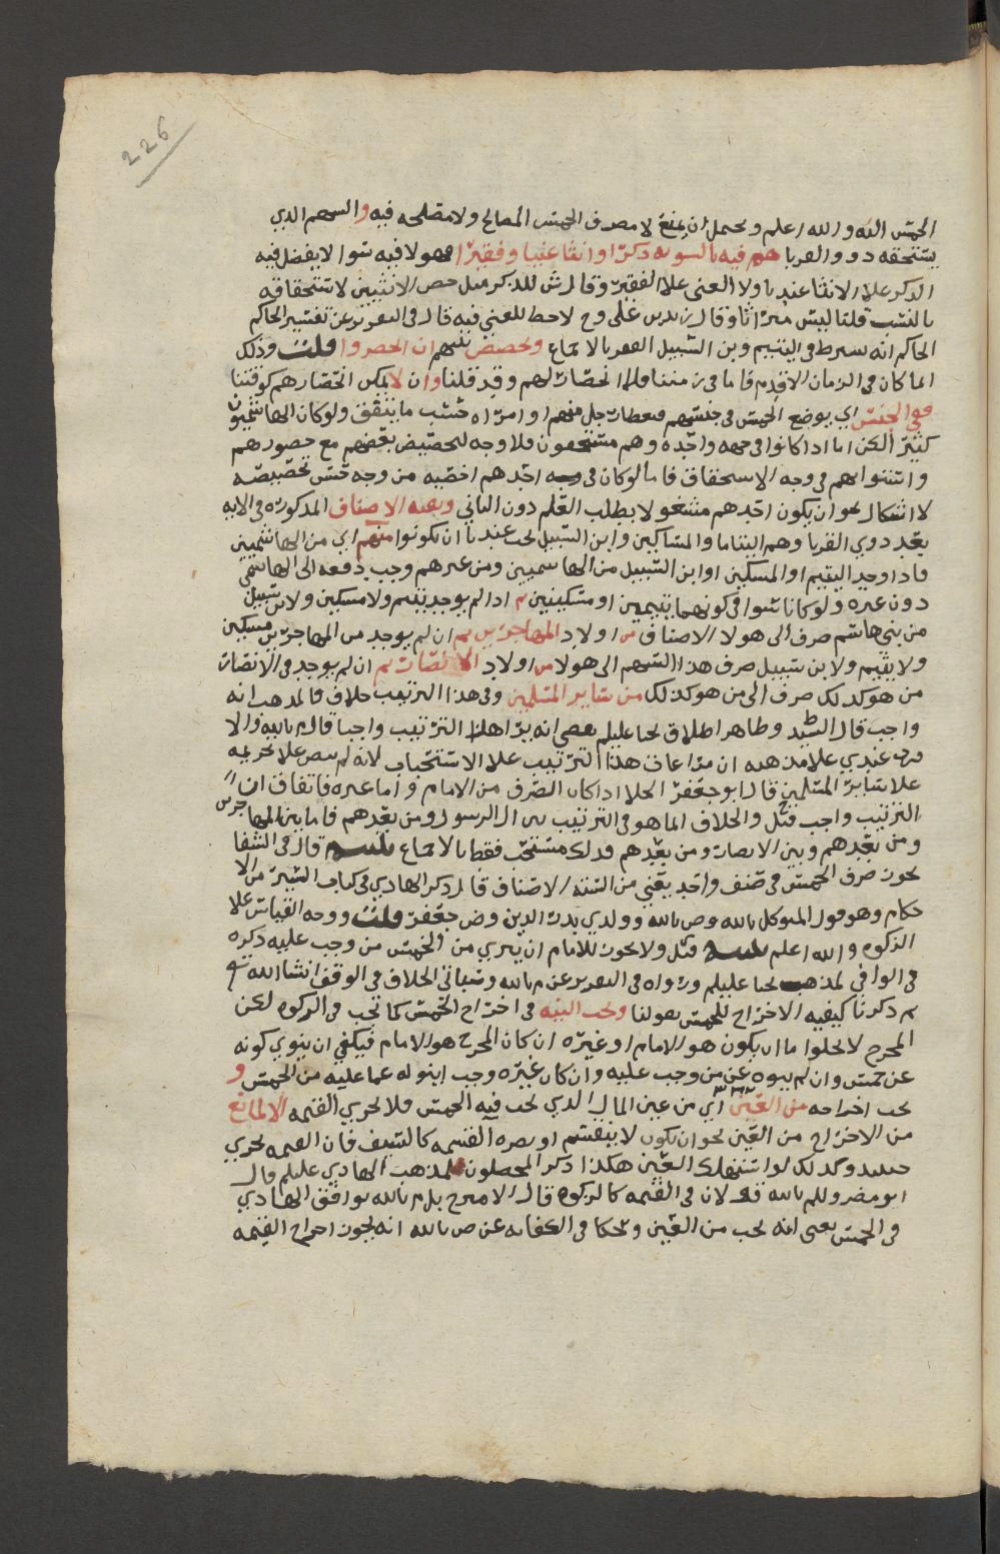 226
الخمس الله والله اعلم ويحتمل ان يمنع لا مصرف الخمس المصالح ولا مصلحه فيه والسهم الذي
يستحقه ذوو القربا هم فيه بالسويه ذكرا او انثا غنيا وفقيرا فهولا فيه سوا لا يفضل فيه
الذكر علا الانثا عندنا ولا الغني علا الفقير وقال ش للذكر مثل حص الانثيين لا ستحقاقه
بالنسب قلنا ليس ميراثا وقال زيد بن علي وح لاحظ للغني فيه قال في التقرير عن تفسير الحاكم
الحاكم انه يشرط في اليتيم وبن السبيل الفقر بالاجماع وتخصص بينهم ان انحصروا قلت وذلك
انما كان في الزمان الاقدم فاما في زمننا فلا انحصار لهم وقد قلنا وان لا يمكن انحصارهم كوقتنا
ففي الجنس اي يوضع الخمس في جنسهم فيعطا رجل منهم او امراه حسب ما يتفق ولو كان الهاشميون
كثير الكن اما اذا كانوا في جهه واحده وهم مستحقون فلا وجه لتخصيص بعضهم مع حضورهم
واستوايهم في وجه الاستحقاق فاما لو كان في وجه احدهم اخصيه من وجه حسن تخصيصه
لا اشكال نحو ان يكون احدهم مشتغلا بطلب العلم دون الثاني وبقيه الاصناف المذكوره في الايه
بعد ذوي القربا وهم اليتاما والمساكين وابن السبيل يجب عندنا ان يكونوا منهم اي من الهاشميين
فاذا وجد اليتيم او المسكين او ابن السبيل من الهاشميين ومن غيرهم وجب دفعه الى الهاشمي
دون غيره ولو كانا سوا في كونهما يتيمين او مسكينين ثم اذا لم يوجد يتيم ولا مسكين ولا بن سبيل
من بني هاشم صرف الى هولا الاصناف من اولاد المهاجرين ثم ان لم يوجد من المهاجرين مسكين
ولا يتيم ولا بن سبيل صرف هذا السهم الى هولا من اولاد الانصار ثم ان لم يوجد في الانصار
من هو كذلك صرف الى من هو كذلك من ساير المسلمين وفي هذا الترتيب خلاف فالمذهب انه
واجب قال السيد وظاهر اطلاق يحيا عليلم يقضي انه يرا هذا الترتيب واجبا قال م بالله والا
قرب عندي علا مذهبه ان مراعات هذا الترتيب علا الاستحباب لانه لم ينص علا تحريمه
علا ساير المسلمين قال ابو جعفر الخلا اذا كان الصرف من الامام واما غيره فاتفاق ان
الترتيب واجب قيل والخلاف انما هو في الترتيب بين ال الرسول ومن بعدهم فاما بين المهاجرين
ومن بعدهم وبين الانصار ومن بعدهم فذلك مستحب فقط بالاجماع تنبيه قال في الشفا
يجوز صرف الخمس في صنف واحد يعني من السته الاصناف قال ذكر الهادي في كتاب السير من الا
حكام وهو قول المتوكل بالله وص بالله وولدي بدر الدين وض جعفر قلت ووجه القياس علا
الزكوه والله اعلم تنبيه قيل ولا يجوز للامام ان يبري من الخمس من وجب عليه ذكره
في الوافي لمذهب يحيا عليلم ورواه في التقرير عن م بالله وسياتي الخلاف في الوقف انشا الله
ثم ذكرنا كيفيه الاخراج للخمس بقولنا وتجب النيه في اخراج الخمس كما تجب في الزكوه لكن
المخرج لا يخلوا اما ان يكون هو الامام او غيره ان كان المخرج هو الامام فيكفي ان ينوي كونه
عن خمس وان لم ينوه عن من وجب عليه وان كان غيره وجب اينوله عما عليه من الخمس و
يجب اخراجه من العين اي من عين المال الذي يجب فيه الخمس فلا يجزي القيمه الا لمانع
من الاخراج من العين نحو ان يكون لا ينقسم او يضره القسمه كالسيف فان القيمه تجزي
حينيذ وكذلك لو استهلك العين هكذا ذكر المحصلون للمذهب الهادي عليلم وقال
ابو مضر وللم بالله قولان في القيمه كالزكوه قال الاصح بل م بالله يوافق الهادي
في الخمس يعني انه يجب من العين وحكا في الكفايه عن ص بالله انه يجوز اخراج القيمه